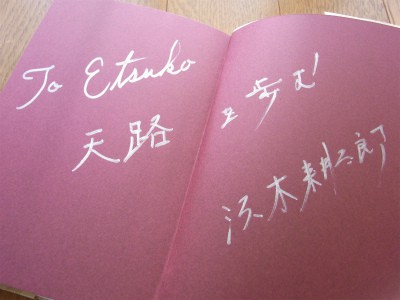 To Etsuko
天路
を歩む!
沢木耕太郎